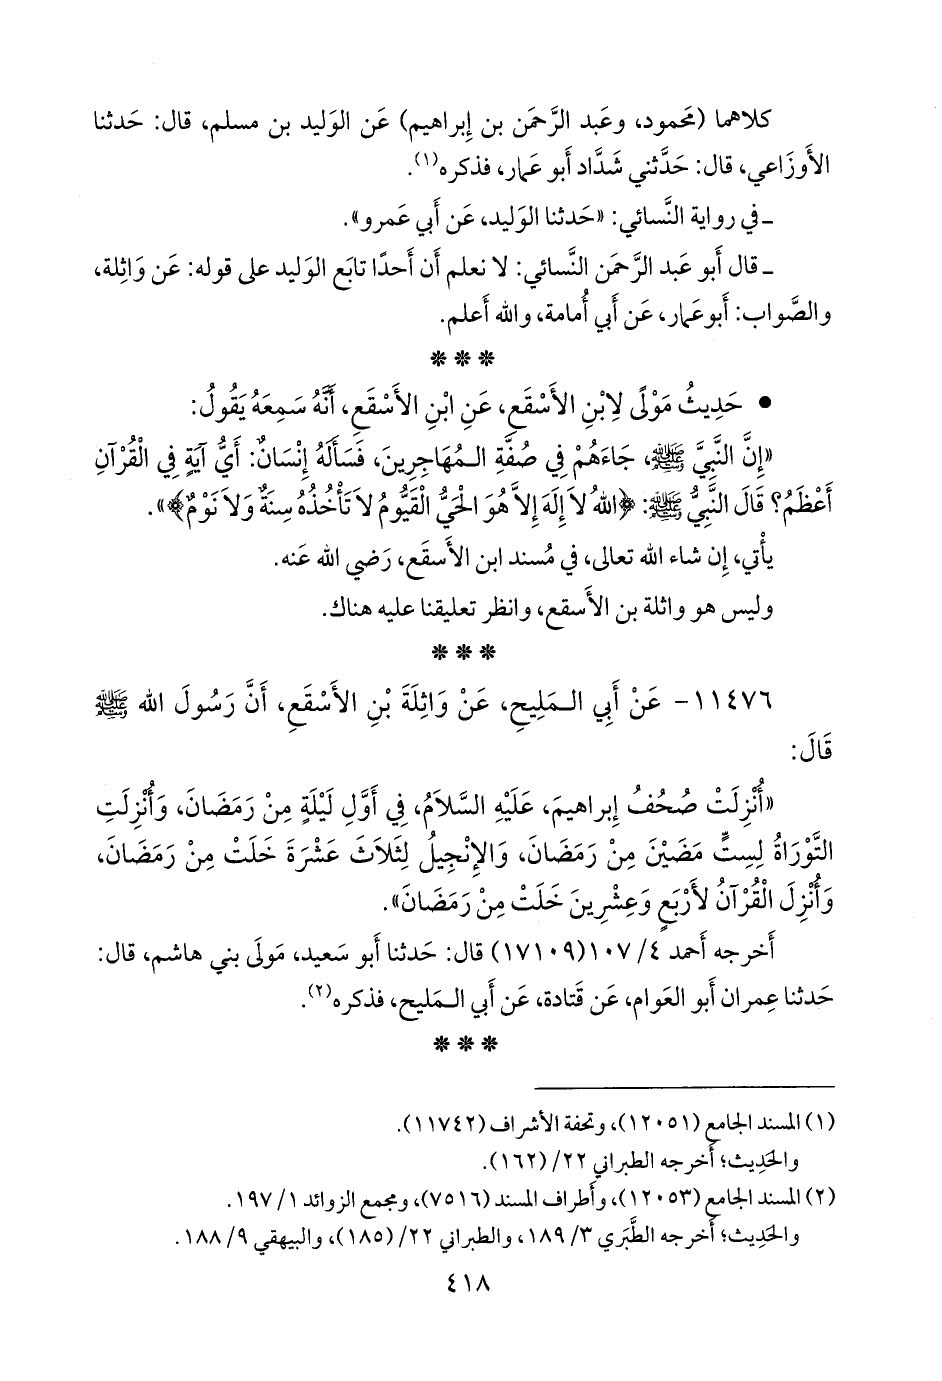 كلاهما (محمود، وعبد الرَّحمَن بن إبراهيم) عَن الوَليد بن مسلم، قال: حَدثنا
الأَوزَاعي، قال: حَدَّثني شَدَّاد أَبو عَمار، فذكره(١).
ـ في رواية النَّسائي: «حَدثنا الوَليد، عَن أَبي عَمرو».
ـ قال أَبو عَبد الرَّحمَن النَّسائي: لا نعلم أَن أَحدًا تابَع الوَليد على قوله: عَن وَاثِلة،
والصَّواب: أَبو عَمار، عَن أَبي أُمامة، والله أَعلم.
* * *
• حَدِيثُ مَوْلًى لِابْنِ الأَسْقَعِ، عَنِ ابْنِ الأَسْقَعِ، أَنَّهُ سَمِعَهُ يَقُولُ:
«إِنَّ النَّبِيَّ ﷺ، جَاءَهُمْ فِي صُفَّةِ الـمُهَاجِرِينَ، فَسَأَلَهُ إِنْسَانٌ: أَيُّ آيَةٍ فِي الْقُرْآنِ
أَعْظَمُ؟ قَالَ النَّبِيُّ ﷺ: ﴿اللهُ لاَ إِلَهَ إِلاَّ هُوَ الْحَيُّ الْقَيُّومُ لاَ تَأْخُذُهُ سِنَةٌ وَلاَ نَوْمٌ﴾».
يأْتي، إِن شاء الله تعالى، في مُسند ابن الأَسقَع، رَضي الله عَنه.
وليس هو واثلة بن الأَسقع، وانظر تعليقنا عليه هناك.
* * *
١١٤٧٦- عَنْ أَبِي الـمَلِيحِ، عَنْ وَاثِلَةَ بْنِ الأَسْقَعِ، أَنَّ رَسُولَ الله ﷺ
قَالَ:
«أُنْزِلَتْ صُحُفُ إِبراهيمَ، عَلَيْهِ السَّلاَمُ، فِي أَوَّلِ لَيْلَةٍ مِنْ رَمَضَانَ، وَأُنْزِلَتِ
التَّوْرَاةُ لِسِتٍّ مَضَيْنَ مِنْ رَمَضَانَ، وَالإِنْجِيلُ لِثَلاَثَ عَشْرَةَ خَلَتْ مِنْ رَمَضَانَ،
وَأُنْزِلَ الْقُرْآنُ لأَرْبَعٍ وَعِشْرِينَ خَلَتْ مِنْ رَمَضَانَ».
أَخرجه أَحمد ٤/ ١٠٧(١٧١٠٩) قال: حَدثنا أَبو سَعيد، مَولَى بني هاشم، قال:
حَدثنا عِمران أَبو العَوام، عَن قَتادة، عَن أَبي الـمَليح، فذكره(٢).
* * *
(١) المسند الجامع (١٢٠٥١)، وتحفة الأشراف (١١٧٤٢).
والحَدِيث؛ أَخرجه الطبراني ٢٢/ (١٦٢).
(٢) المسند الجامع (١٢٠٥٣)، وأَطراف المسند (٧٥١٦)، ومجمع الزوائد ١/ ١٩٧.
والحَدِيث؛ أَخرجه الطَّبَري ٣/ ١٨٩، والطبراني ٢٢/ (١٨٥)، والبيهقي ٩/ ١٨٨.
٤١٨